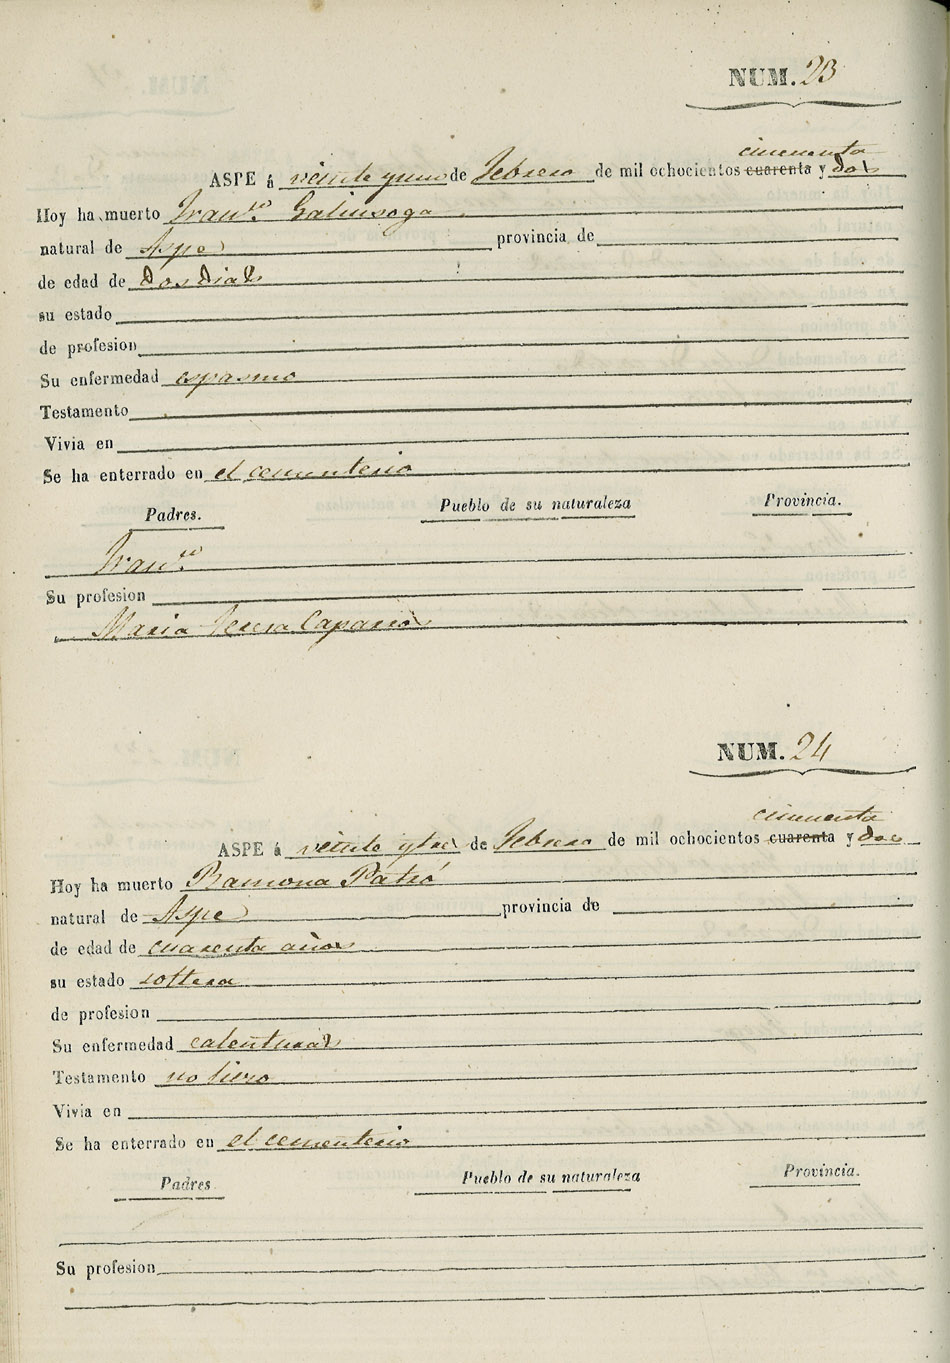 NUM. 23
cincuenta
ASPE á veinte y uno de Febrero de mil ochocientos cuarenta y dos
Hoy ha muerto Fran.co Galinsoga
natural de Aspe provincia de
de edad de dos dias
su estado
de profesion
Su enfermedad espasmo
Testamento
Vivia en
Se ha enterrado en el cementerio
Padres. Pueblo de su naturaleza Provincia.
Fran.co
Su profesion
Maria Teresa Caparros
NUM. 24
cincuenta
ASPE á veinte y tres de Febrero de mil ochocientos cuarenta y dos
Hoy ha muerto Ramona Patró
natural de Aspe provincia de
de edad de cuarenta años
su estado soltera
de profesion
Su enfermedad calenturas
Testamento no hizo
Vivia en
Se ha enterrado en el cementerio
Padres Pueblo de su naturaleza Provincia.
Su profesion